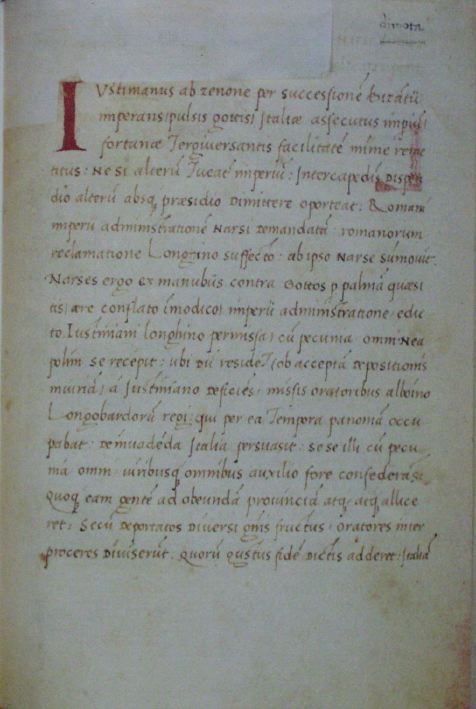 dimota
IUstinianus ab zenone per successionē bizātiū
imperans pulsis gottis Italiae assecutus impiū
fortunae Tergiuersantis facilitatē mīme
titus: Ne si alterū Tueāt imperiū: Intercapedīs Dispē
dio alterū absq̄ praesidio Dimittere oporteat: Romani
imperii administrationē Narsi demandatā: romanorum
reclamatione Longhino suffecto: ab ipso Narse sumouit.
Narses ergo ex manubiis contra Gottos p palmā quaesi
tis aere conflato īmodico imperii administratione educ
to. Iustiniani longhino permissa cū pecunia omni Nea
polim se recepit: ubi dū residet ob acceptā depositionis
iniuriā a Iustiniano deficiēs: missis oratoribus alboino
Longobardorū regi: qui per ea Tempora panoniā occu
pabat: de inuadēda Italia persuasit: se se illi cū pecu
nia omni uiribusq̄ omnibus auxilio fore confederās:
quoq̄ eam gentē ad obeundā prouinciā atq̄ atq̄ allice
ret: Secū deportatos Diuersi gn̄is fructus: oratores inter
proceres Diuiserūt: Quorū gustus fidē Dictis adderet: Italiā